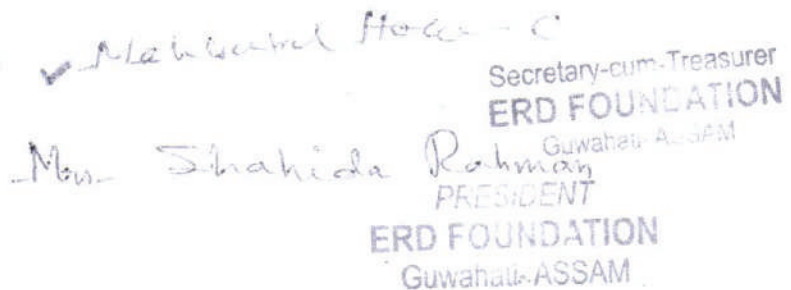 Mahbubul Hoque
Secretary-cum-Treasurer
ERD FOUNDATION
Guwahati-ASSAM
Mrs. Shahida Rahman
PRESIDENT
ERD FOUNDATION
Guwahati-ASSAM